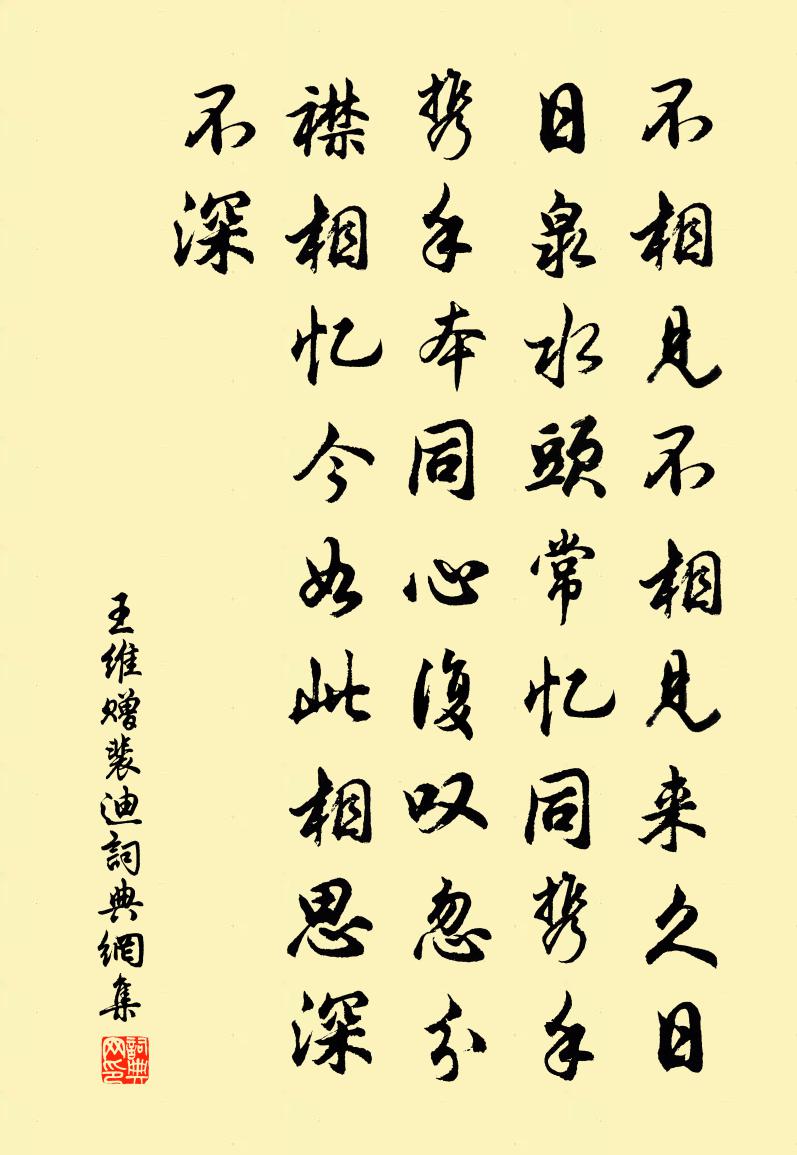 不相見不相見来久日
日泉水頭常忆同携手
携手本同心復叹忽分
襟相忆今如此相思深
不深
王维赠裴迪詞典網集
詞典网印